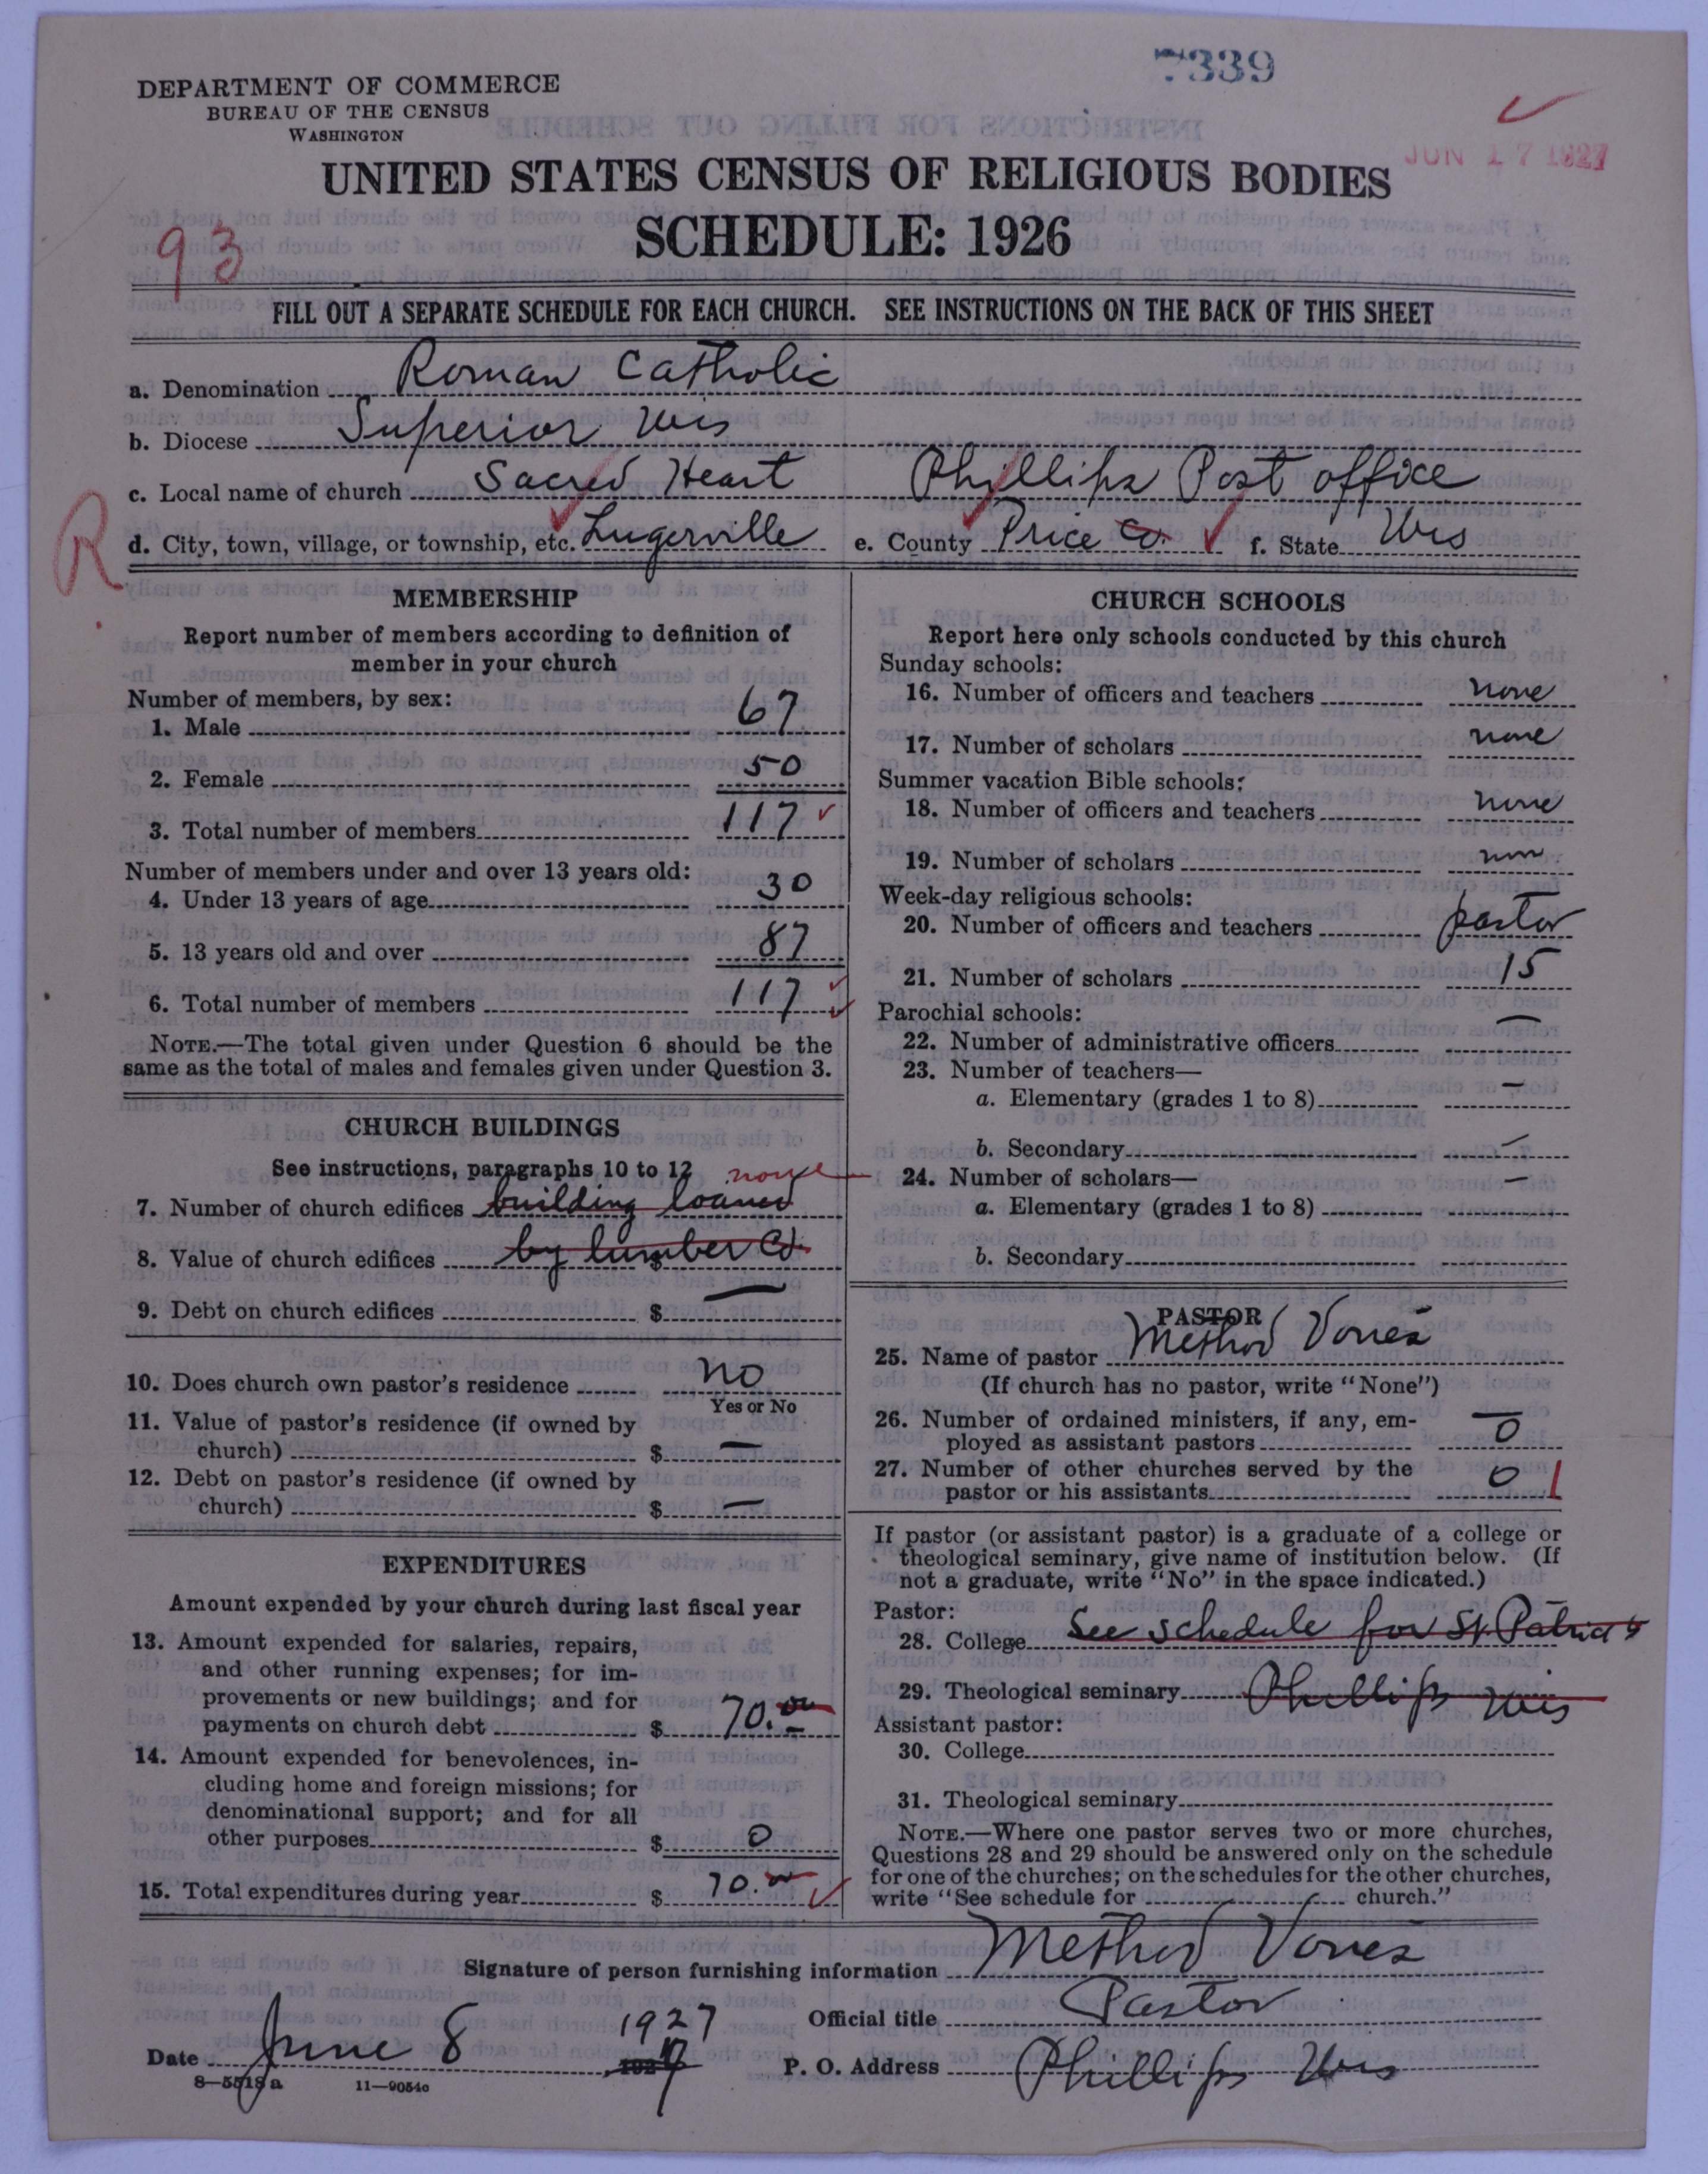 7339
DEPARTMENT OF COMMERCE
BUREAU OF THE CENSUS
WASHINGTON
JUN 17 1927
UNITED STATES CENSUS OF RELIGIOUS BODIES
SCHEDULE: 1926
93
FILL OUT A SEPARATE SCHEDULE FOR EACH CHURCH. SEE INSTRUCTIONS ON THE BACK OF THIS SHEET
a. Denomination Roman Catholic
b. Diocese Superior Wis
c. Local name of church Sacred Heart Phillips Post office
R
d. City, town, village, or township, etc. Lugerville e. County Price Co. f. State Wis
MEMBERSHIP
Report number of members according to definition of
member in your church
Number of members, by sex:
1. Male 67
2. Female 50
3. Total number of members 117
Number of members under and over 13 years old:
4. Under 13 years of age 30
5. 13 years old and over 87
6. Total number of members 117
NOTE.—The total given under Question 6 should be the
same as the total of males and females given under Question 3.
CHURCH BUILDINGS
See instructions, paragraphs 10 to 12 none
7. Number of church edifices building loaned
8. Value of church edifices by lumber Co. $
9. Debt on church edifices $ —
10. Does church own pastor's residence no
Yes or No
11. Value of pastor's residence (if owned by
church) $ —
12. Debt on pastor's residence (if owned by
church) $ —
EXPENDITURES
Amount expended by your church during last fiscal year
13. Amount expended for salaries, repairs,
and other running expenses; for im-
provements or new buildings; and for
payments on church debt $ 70.00
14. Amount expended for benevolences, in-
cluding home and foreign missions; for
denominational support; and for all
other purposes $ 0
15. Total expenditures during year $ 70.00
CHURCH SCHOOLS
Report here only schools conducted by this church
Sunday schools:
16. Number of officers and teachers none
17. Number of scholars none
Summer vacation Bible schools:
18. Number of officers and teachers none
19. Number of scholars
Week-day religious schools:
20. Number of officers and teachers pastor
21. Number of scholars 15
Parochial schools:
22. Number of administrative officers —
23. Number of teachers—
a. Elementary (grades 1 to 8) —
b. Secondary —
24. Number of scholars— —
a. Elementary (grades 1 to 8)
b. Secondary
PASTOR
25. Name of pastor Method Vones
(If church has no pastor, write "None")
26. Number of ordained ministers, if any, em-
ployed as assistant pastors 0
27. Number of other churches served by the
pastor or his assistants 0 1
If pastor (or assistant pastor) is a graduate of a college or
theological seminary, give name of institution below. (If
not a graduate, write "No" in the space indicated.)
Pastor:
28. College See schedule for St. Patrick's
29. Theological seminary Phillips Wis
Assistant pastor:
30. College
31. Theological seminary
NOTE.—Where one pastor serves two or more churches,
Questions 28 and 29 should be answered only on the schedule
for one of the churches; on the schedules for the other churches,
write "See schedule for church."
Signature of person furnishing information Method Vones
Official title Pastor
Date June 8 1927 1927 P. O. Address Phillips Wis
8—5518 a 11—9054c